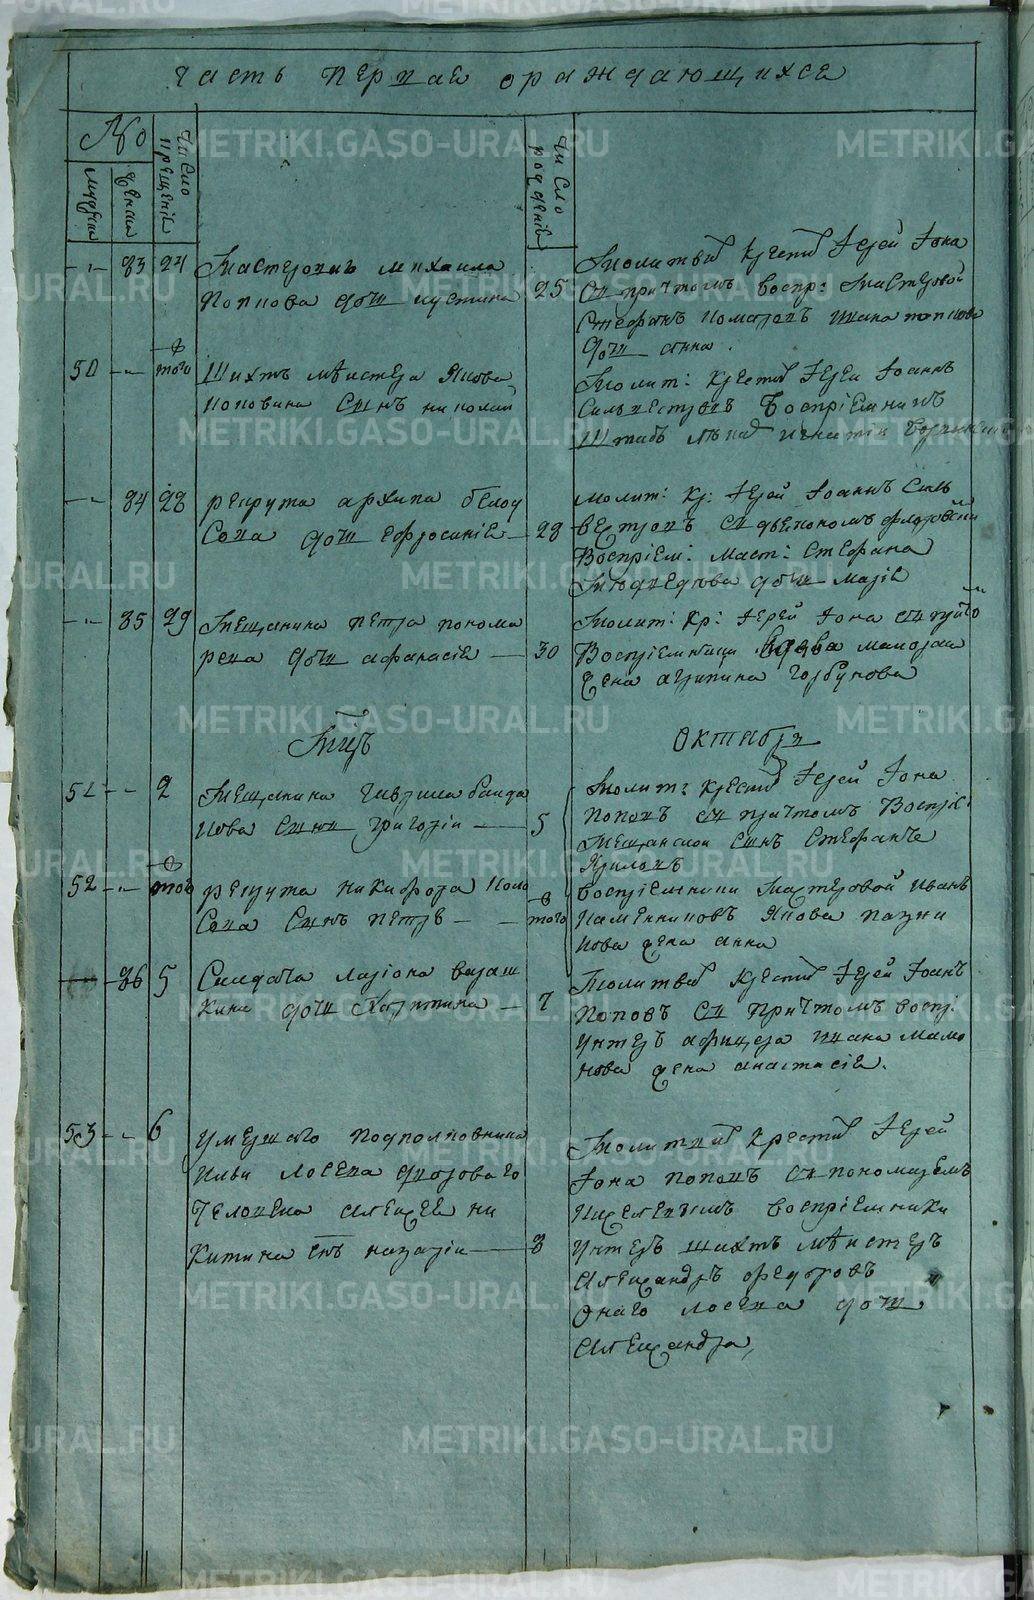 Часть первая о раждающихся
№
мужеска
женска
число крещенiя
число рожденiя
83 24 Мастероваго Михаила
Попкова дочь Иустина 25
Молитвилъ крестилъ Iерей Iона
Съ причтомъ воспр: Мастеровой
Стефанъ Ивана Попкова
дочь Анна.
50 того Шихтъ мѣистера Якова
Поповина Сынъ Николай
Молит: крестилъ Iерей Iоаннъ
Сильвестровъ Воспрiемникъ
Штабъ лѣкарь Игнатiй
84 28 рекрута Архипа Белоу
Сова дочь Ефросинiя 29
молит: кр: Iерей Iоаннъ Силь
вестровъ Съ дьякономъ Флоровскимъ
Воспрiем: маст: Стефана
Медведкова дочь Марiя
85 29 Мещанина Петра Понома
рева дочь Афанасiя 30
Молит: Кр: Iерей Iона съ причто
Воспрiемница вдова
жена Агрипина Горбунова
Октября
51 2 Мещанина Гаврила
кова Сынъ Григорiй 5
Молитв: крестилъ Iерей Iона
Поповъ съ причтомъ Воспрiе:
Мещанской Сынъ Стефанъ
52 того рекрута Никифора Коло
Сова Сынъ Петръ того
Воспрiемники Мастеровой Иванъ
Каменщиковъ Якова
кова жена Анна
86 5 Салдата Ларiона
кина дочь 7
Молитвилъ крестилъ Iерей Iоанъ
Поповъ Съ Причтомъ воспр:
Унтеръ афицера Ивана Мамо
нова жена Анастасiя.
53 6 Умершаго Подполковника
Ильи Лосева дворового
Человека Алексея Ни
китина Сынъ Назарiй 8
Молитвилъ Крестилъ Iерей
Iона Поповъ Съ пономаремъ
Киселевымъ воспрiемники
Унтеръ шихтъ мѣистеръ
Александръ Федоровъ
Онаго Лосева дочь
Александра,
METRIKI.GASO-URAL.RU